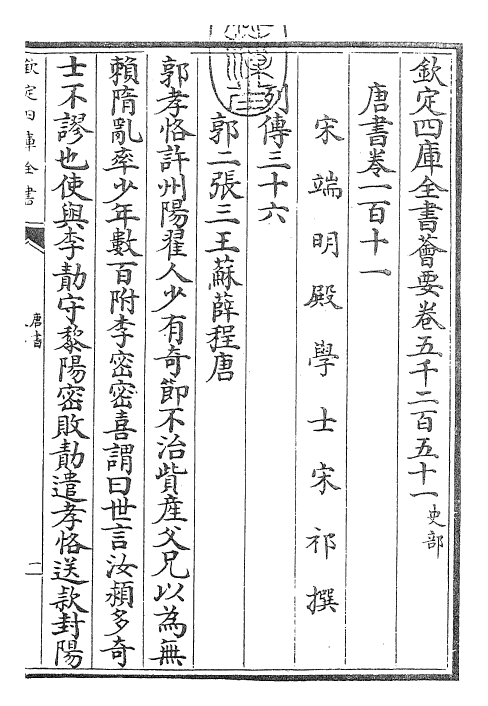 欽定四庫全書薈要卷五千二百五十一 史部
唐書卷一百十一
宋端明殿學士宋祁撰
列傳三十六
郭二張三王蘇薛程唐
郭孝恪許州陽翟人少有奇節不治貲產父兄以為無
賴隋亂率少年數百附李密密喜謂曰世言汝潁多奇
士不謬也使與李勣守黎陽密敗勣遣孝恪送款封陽
欽定四庫全書
唐書